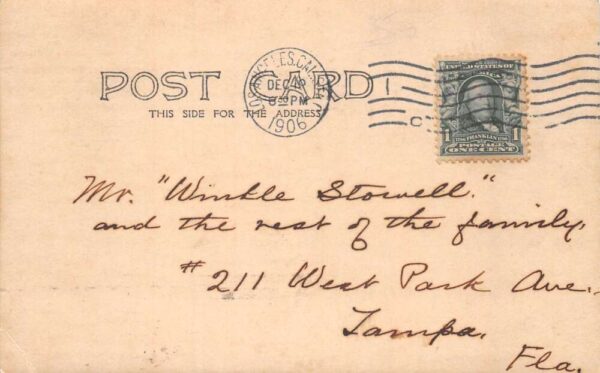 POST CARD
THIS SIDE FOR THE ADDRESS
LOS ANGELES, CAL.
DEC
PM
1906
1 FRANKLIN 1
POSTAGE
ONE CENT
Mr. "Winkle Stowell."
and the rest of the family.
#211 West Park Ave.
Tampa.
Fla.